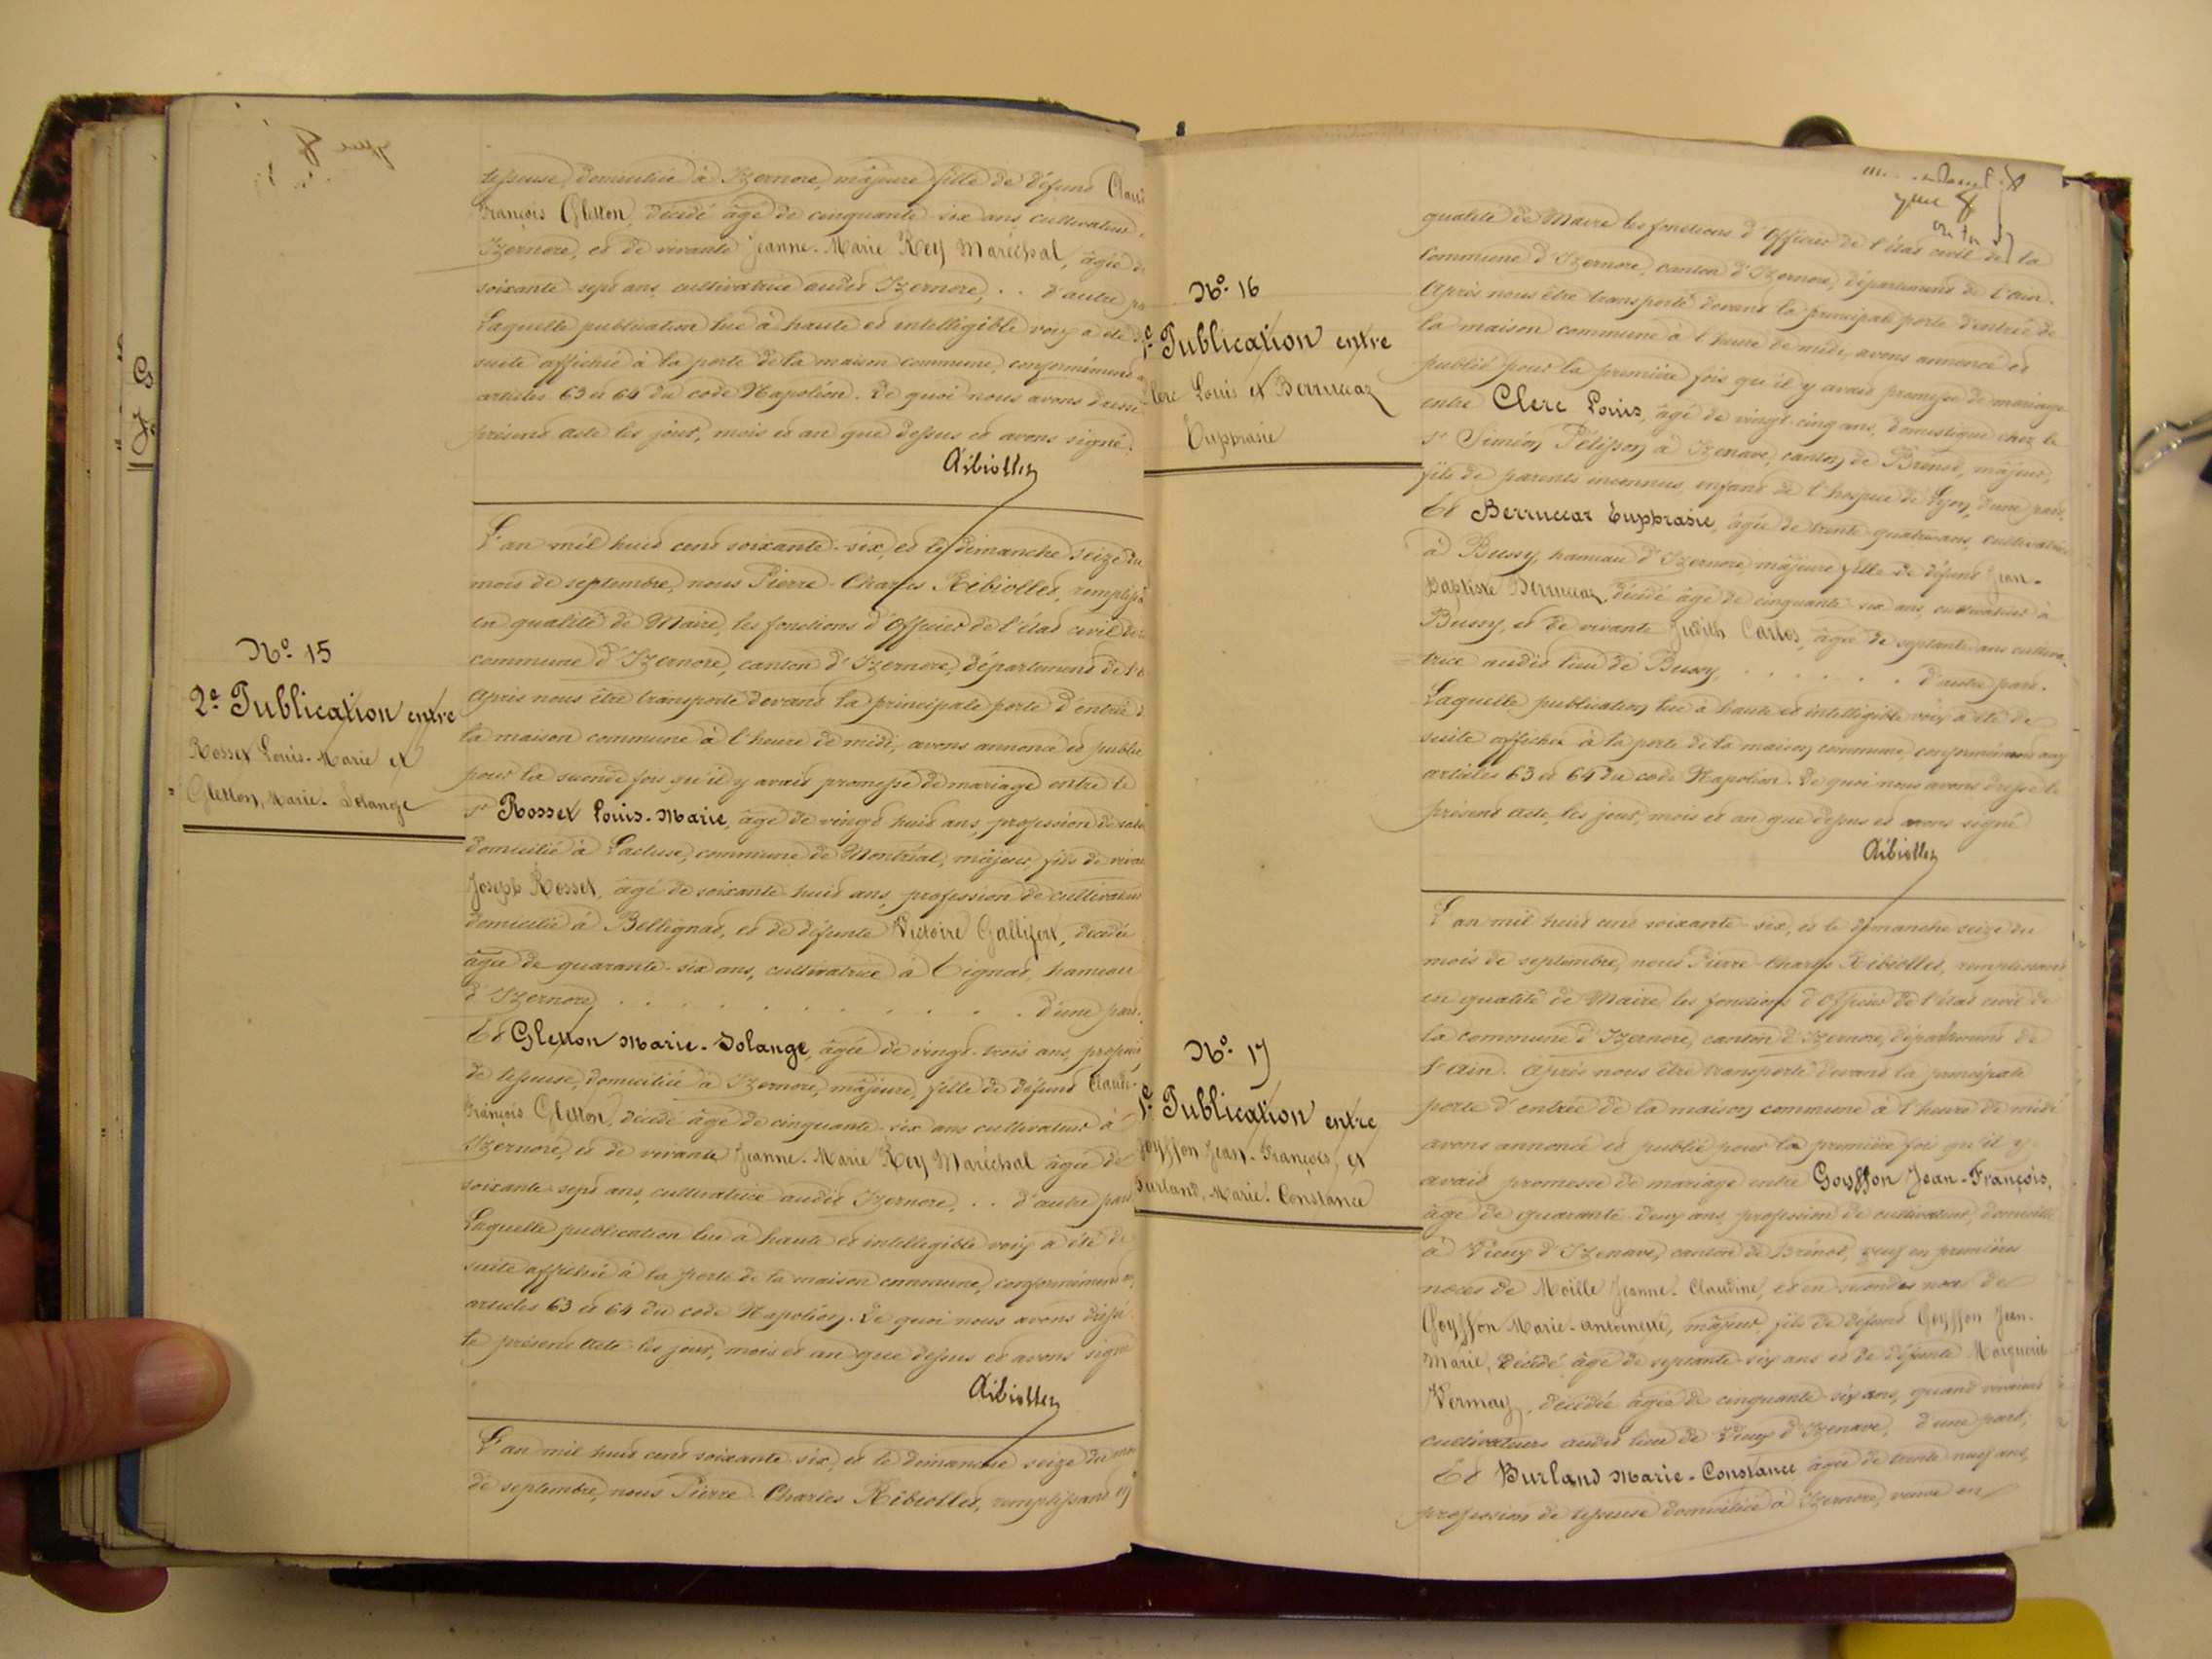 tisseuse, domiciliée à Izernore, majeure fille de défunt Claud
François Gletton, décédé âgé de cinquante six ans, cultivateur
Izernore, et de vivante Jeanne-Marie Rey Maréchal, âgée d
soixante sept ans, cultivatrice audit Izernore, . . d'autre pa
Laquelle publication lue à haute et intelligible voix a été d
suite affichée à la porte de la maison commune, conformément a
articles 63 et 64 du code Napoléon. De quoi nous avons dressé
présent acte les jour, mois et an que dessus et avons signé.
Ribiollet
L'an mil huit cent soixante-six, et le dimanche seize du
mois de septembre, nous Pierre-Charles Ribiollet, remplissa
en qualité de Maire, les fonctions d'Officier de l'état civil de
commune d'Izernore, canton d'Izernore, département de l'a
Après nous être transporté devant la principale porte d'entrée d
la maison commune à l'heure de midi, avons annoncé et publié
pour la seconde fois qu'il y avait promesse de mariage entre le
Sr Rosset Louis-Marie, âgé de vingt huit ans, profession de
domicilié à Lacluse, commune de Montréal, majeur, fils de viva
Joseph Rosset, âgé de soixante huit ans, profession de cultivateur
domicilié à Bellignat, et de défunte Victoire Gallifert, décédée
âgée de quarante-six ans, cultivatrice à Tignat, hameau
d'Izernore . . . . . . . . . . . d'une part.
Et Gletton Marie-Solange, âgée de vingt-trois ans, profess
de tisseuse, domiciliée à Izernore, majeure, fille de défunt Claude-
François Gletton, décédé âgé de cinquante-six ans cultivateur à
Izernore, et de vivante Jeanne-Marie Rey Maréchal âgée de
soixante-sept ans, cultivatrice audit Izernore, . . d'autre part
Laquelle publication lue à haute et intelligible voix a été de
suite affichée à la porte de la maison commune, conformément a
articles 63 et 64 du code Napoléon. De quoi nous avons dressé
le présent acte les jour, mois et an que dessus et avons signé
Ribiollet
L'an mil huit cent soixante six, et le dimanche seize du mo
de septembre, nous Pierre-Charles Ribiollet, remplissant en
No. 15
2e. Publication entre
Rosset Louis-Marie et
Gletton, Marie-Solange
No. 16
1e. Publication entre
Clerc Louis et Berruccaz
Euphrasie
qualité de Maire les fonctions d'Officier de l'état civil de la
Commune d'Izernore, canton d'Izernore, département de l'Ain.
Après nous être transporté devant la principale porte d'entrée de
la maison commune à l'heure de midi, avons annoncé et
publié pour la première fois qu'il y avait promesse de mariage
entre Clerc Louis, âgé de vingt-cinq ans, domestique chez le
Sr Siméon Pélisson à Izenave, canton de Brénod, majeur,
fils de parents inconnus, enfant de l'hospice de Lyon, d'une part,
Et Berruccaz Euphrasie, âgée de trente-quatre ans, cultivatrice
à Bussy, hameau d'Izernore, majeure fille de défunt Jean-
Baptiste Berruccaz, décédé âgé de cinquante-six ans, cultivateur à
Bussy, et de vivante Judith Carlos, âgée de septante ans cultiva-
trice audit lieu de Bussy, . . . . . . d'autre part.
Laquelle publication lue à haute et intelligible voix a été de
suite affichée à la porte de la maison commune, conformément aux
articles 63 et 64 du code Napoléon. De quoi nous avons dressé le
présent acte, les jour, mois et an que dessus et avons signé
Ribiollet
L'an mil huit cent soixante-six, et le dimanche seize du
mois de septembre, nous Pierre-Charles Ribiollet, remplissant
en qualité de Maire, les fonctions d'Officier de l'état civil de
la commune d'Izernore, canton d'Izernore, département de
l'Ain. Après nous être transporté devant la principale
porte d'entrée de la maison commune à l'heure de midi
avons annoncé et publié pour la première fois qu'il y
avait promesse de mariage entre Goyffon Jean-François,
âgé de quarante-deux ans, profession de cultivateur, domicilié
à Vieux d'Izenave, canton de Brénod, veuf en premières
noces de Moille Jeanne-Claudine, et en secondes noces de
Goyffon Marie-Antoinette, majeur, fils de défunt Goyffon Jean-
Marie, décédé âgé de septante-six ans et de défunte Marguerite
Vermay, décédée âgée de cinquante-six ans, quand vivaient
cultivateurs audit lieu de Vieux d'Izenave, d'une part,
Et Burland Marie-Constance âgée de trente neuf ans,
profession de tisseuse domiciliée à Izernore, veuve en
No. 17
1e. Publication entre
Goyffon Jean-François, et
Burland, Marie-Constance